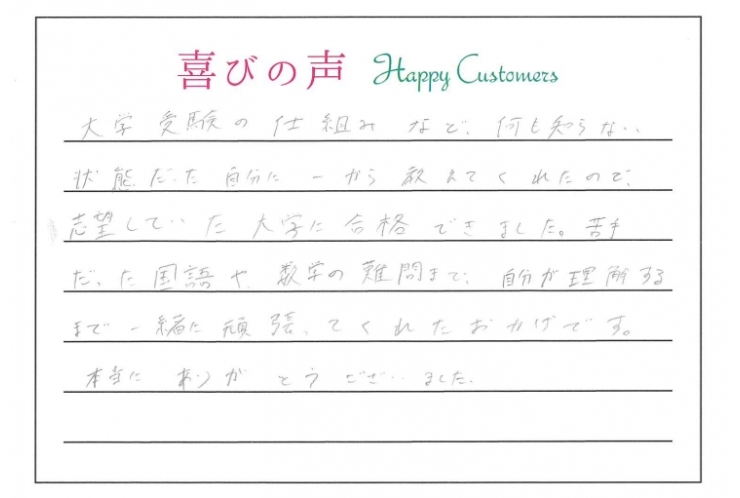 喜びの声 Happy Customers
大学受験の仕組みなど、何も知らない
状態だった自分に一から教えてくれたので、
志望していた大学に合格できました。苦手
だった国語や、数学の難問まで、自分が理解する
まで一緒に頑張ってくれたおかげです。
本当にありがとうございました。